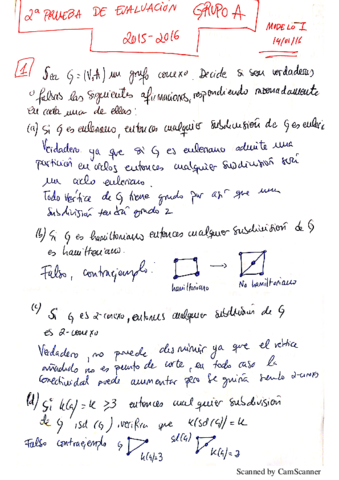 2ª PRUEBA DE EVALUACIÓN GRUPO A
2015-2016
MODELO I
14/01/16
1 Sea G = (V,A) un grafo conexo. Decide si son verdaderas
o falsas las siguientes afirmaciones, respondiendo razonadamente
en cada una de ellas:
(a) Si G es euleriano, entonces cualquier subdivisión de G es euleri
Verdadero ya que si G es euleriano admite una
partición en ciclos entonces cualquier subdivisión será
un ciclo euleriano.
Todo vértice de G tiene grado par así que una
subdivisión tendrá grado 2
(b) Si G es hamiltoniano entonces cualquier subdivisión de G
es hamiltoniano.
Falso, contraejemplo:
hamiltoniano
No hamiltoniano
(c) Si G es 2-conexo, entonces cualquier subdivisión de G
es 2-conexo
Verdadero, no puede disminuir ya que el vértice
añadido no es punto de corte, en todo caso la
conectividad puede aumentar pero se seguiría siendo 2-conexo
(d) Si k(G)=k ≥3 entonces cualquier subdivisión
de G, sd(G), verifica que k(sd(G))=k
Falso contraejemplo G k(G)=3 sd(G) k(G)=2
Scanned by CamScanner